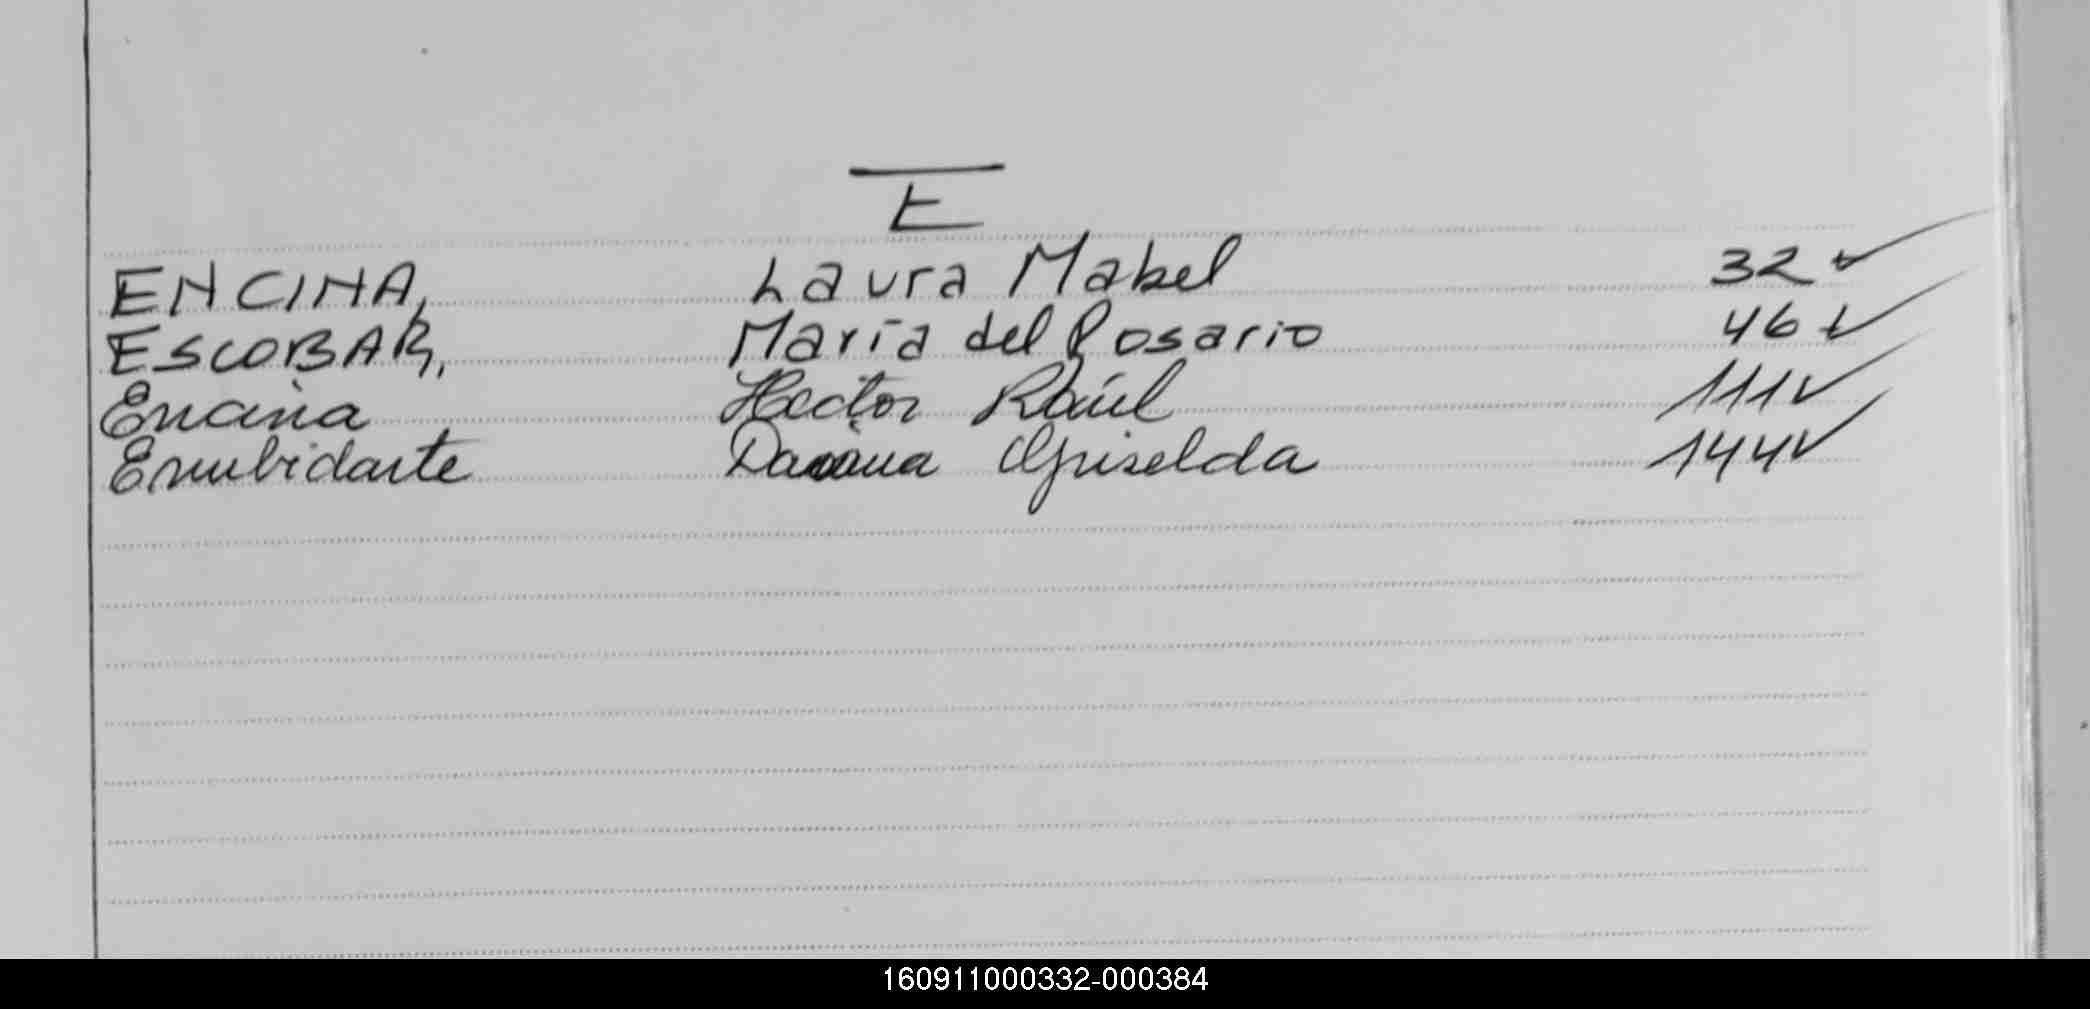 E
ENCINA, Laura Mabel 32 ✓
ESCOBAR, María del Rosario 46 ✓
Encina Hector Raúl 111 ✓
Griselda 144 ✓
160911000332-000384